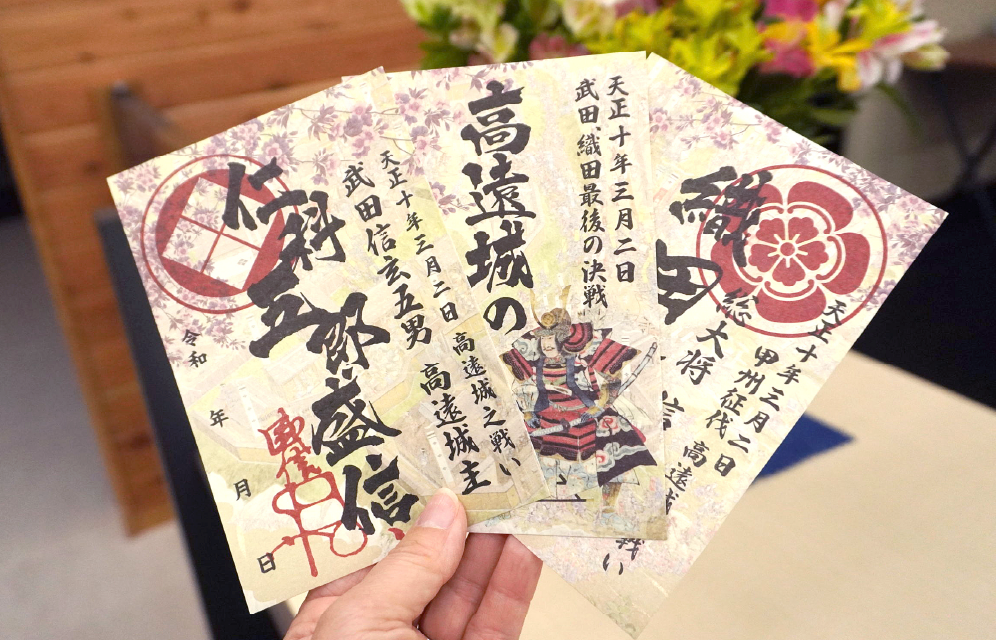 天正十年三月二日 高遠城之戦い
武田信玄五男 高遠城主
仁科五郎盛信
令和 年 月 日
天正十年三月二日
武田、織田最後の決戦
高遠城の
天正十年三月二日 高遠城 戦い
甲州征伐
総大将
織田 信